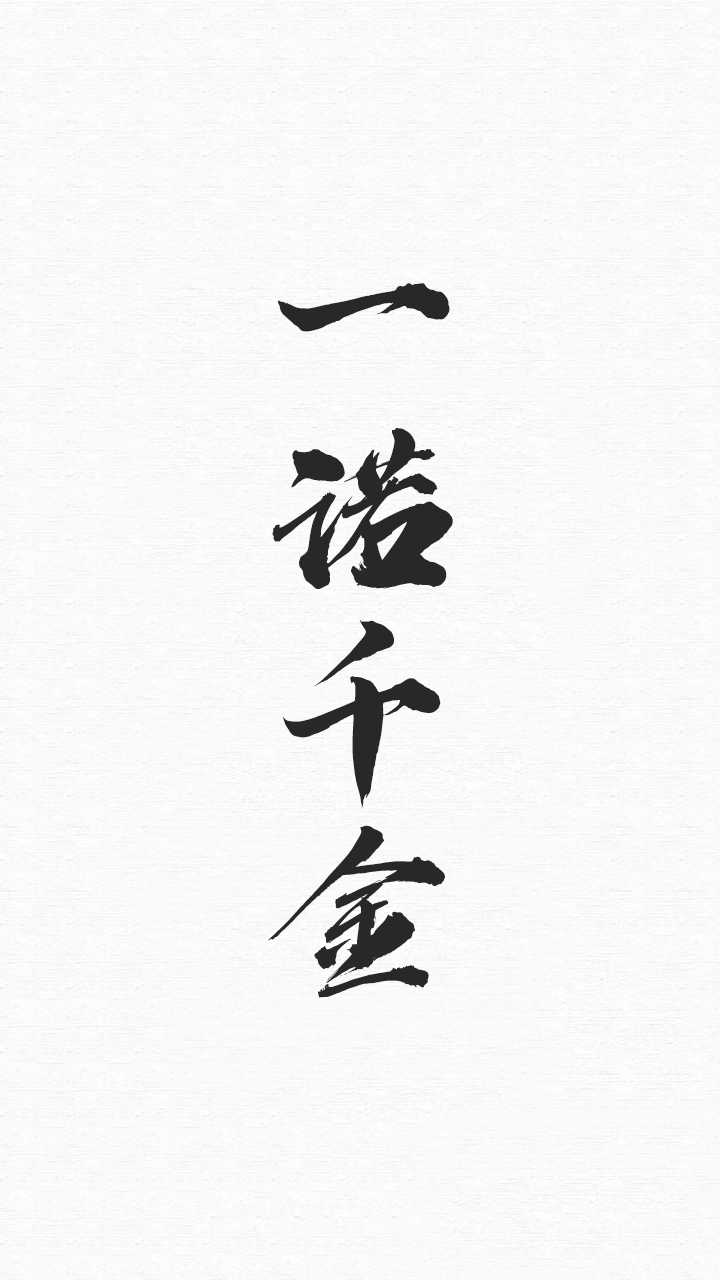 一诺千金